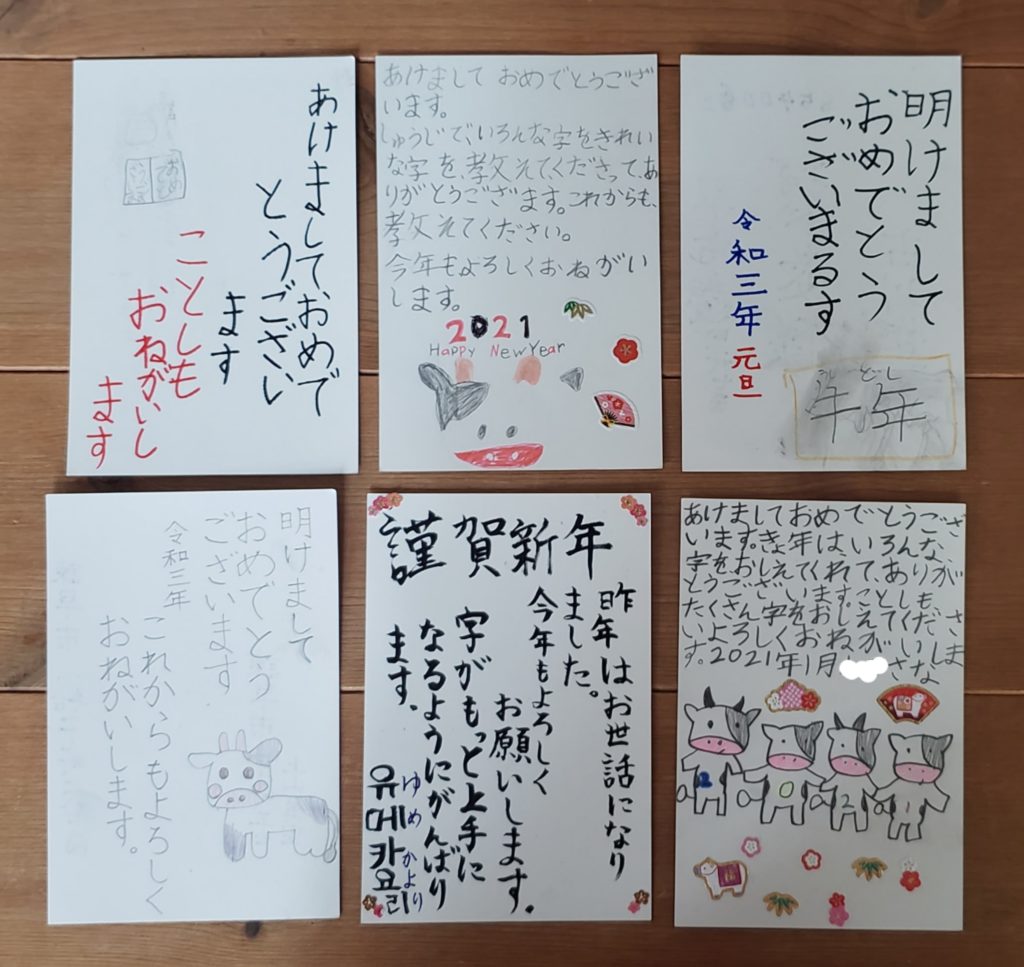 あけましておめで
とうござい
ます
ことしも
おねがいし
ます
おめ
あけまして おめでとうござ
います。
しゅうじで、いろんな字をきれい
な字を、孝攵えてくださって、あり
がとうございます。これからも、
孝攵えてください。
今年もよろしくおねがい
します。
2021
Happy New Year
明けまして
おめでとう
ございまるす
令和三年 元旦
うし どし
年年
明けまして
おめでとう
ございます
令和三年
これからもよろしく
おねがいします。
謹賀新年
昨年はお世話になり
ました。
今年もよろしく
お願いします。
字がもっと上手に
なるようにがんばり
ます。
유메카요리
ゆめ かより
あけましておめでとうござ
います。きょ年は、いろんな、
字を、おしえてくれて、ありが
とうございますことしも
たくさん字をおしえてくださ
い、よろしくおねがいしま
す。2021年1月 さな
2 0 2 1